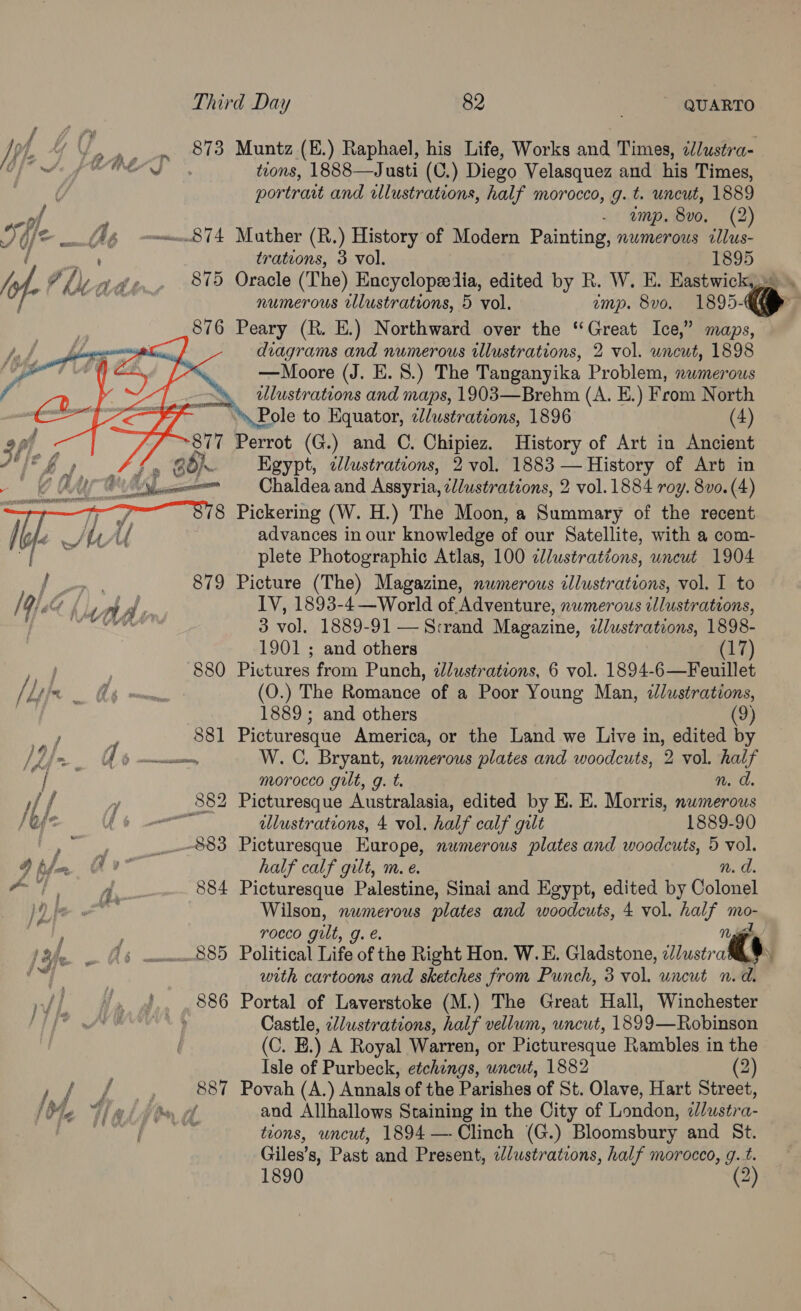 Third Day 82 QUARTO
873 Muntz (E.) Raphael, his Life, Works and Times, illustra-
tions, 1888—Justi (C.) Diego Velasquez and his Times,
portrait and illustrations, half morocco, g. t. uncut, 1889
imp. 8vo. (2)
874 Muther (R.) History of Modern Painting, numerous illus-
trations, 3 vol. 1895
875 Oracle (The) Encyclopædia, edited by R. W. E. Eastwick,
numerous illustrations, 5 vol. imp. 8vo. 1895-
876 Peary (R. E.) Northward over the “Great Ice,” maps,
diagrams and numerous illustrations, 2 vol. uncut, 1898
—Moore (J. E. S.) The Tanganyika Problem, numerous
illustrations and maps, 1903—Brehm (A. E.) From North
Pole to Equator, illustrations, 1896 (4)
877 Perrot (G.) and C. Chipiez. History of Art in Ancient
Egypt, illustrations, 2 vol. 1883—History of Art in
Chaldea and Assyria, illustrations, 2 vol. 1884 roy. 8vo. (4)
878 Pickering (W. H.) The Moon, a Summary of the recent
advances in our knowledge of our Satellite, with a com-
plete Photographic Atlas, 100 illustrations, uncut 1904
879 Picture (The) Magazine, numerous illustrations, vol. I to
IV, 1893-4—World of Adventure, numerous illustrations,
3 vol. 1889-91—Strand Magazine, illustrations, 1898-
1901; and others (17)
880 Pictures from Punch, illustrations, 6 vol. 1894-6—Feuillet
(O.) The Romance of a Poor Young Man, illustrations,
1889; and others (9)
881 Picturesque America, or the Land we Live in, edited by
W. C. Bryant, numerous plates and woodcuts, 2 vol. half
morocco gilt, g. t. n. d.
882 Picturesque Australasia, edited by E. E. Morris, numerous
illustrations, 4 vol. half calf gilt 1889-90
883 Picturesque Europe, numerous plates and woodcuts, 5 vol.
half calf gilt, m. e. n. d.
884 Picturesque Palestine, Sinai and Egypt, edited by Colonel
Wilson, numerous plates and woodcuts, 4 vol. half mo-
rocco gilt, g. e.
885 Political Life of the Right Hon. W. E. Gladstone,
with cartoons and sketches from Punch, 3 vol. uncut n. d.
886 Portal of Laverstoke (M.) The Great Hall, Winchester
Castle, illustrations, half vellum, uncut, 1899—Robinson
(C. E.) A Royal Warren, or Picturesque Rambles in the
Isle of Purbeck, etchings, uncut, 1882 (2)
887 Povah (A.) Annals of the Parishes of St. Olave, Hart Street,
and Allhallows Staining in the City of London, illustra-
tions, uncut, 1894—Clinch (G.) Bloomsbury and St.
Giles’s, Past and Present, illustrations, half morocco, g. t.
1890 (2)